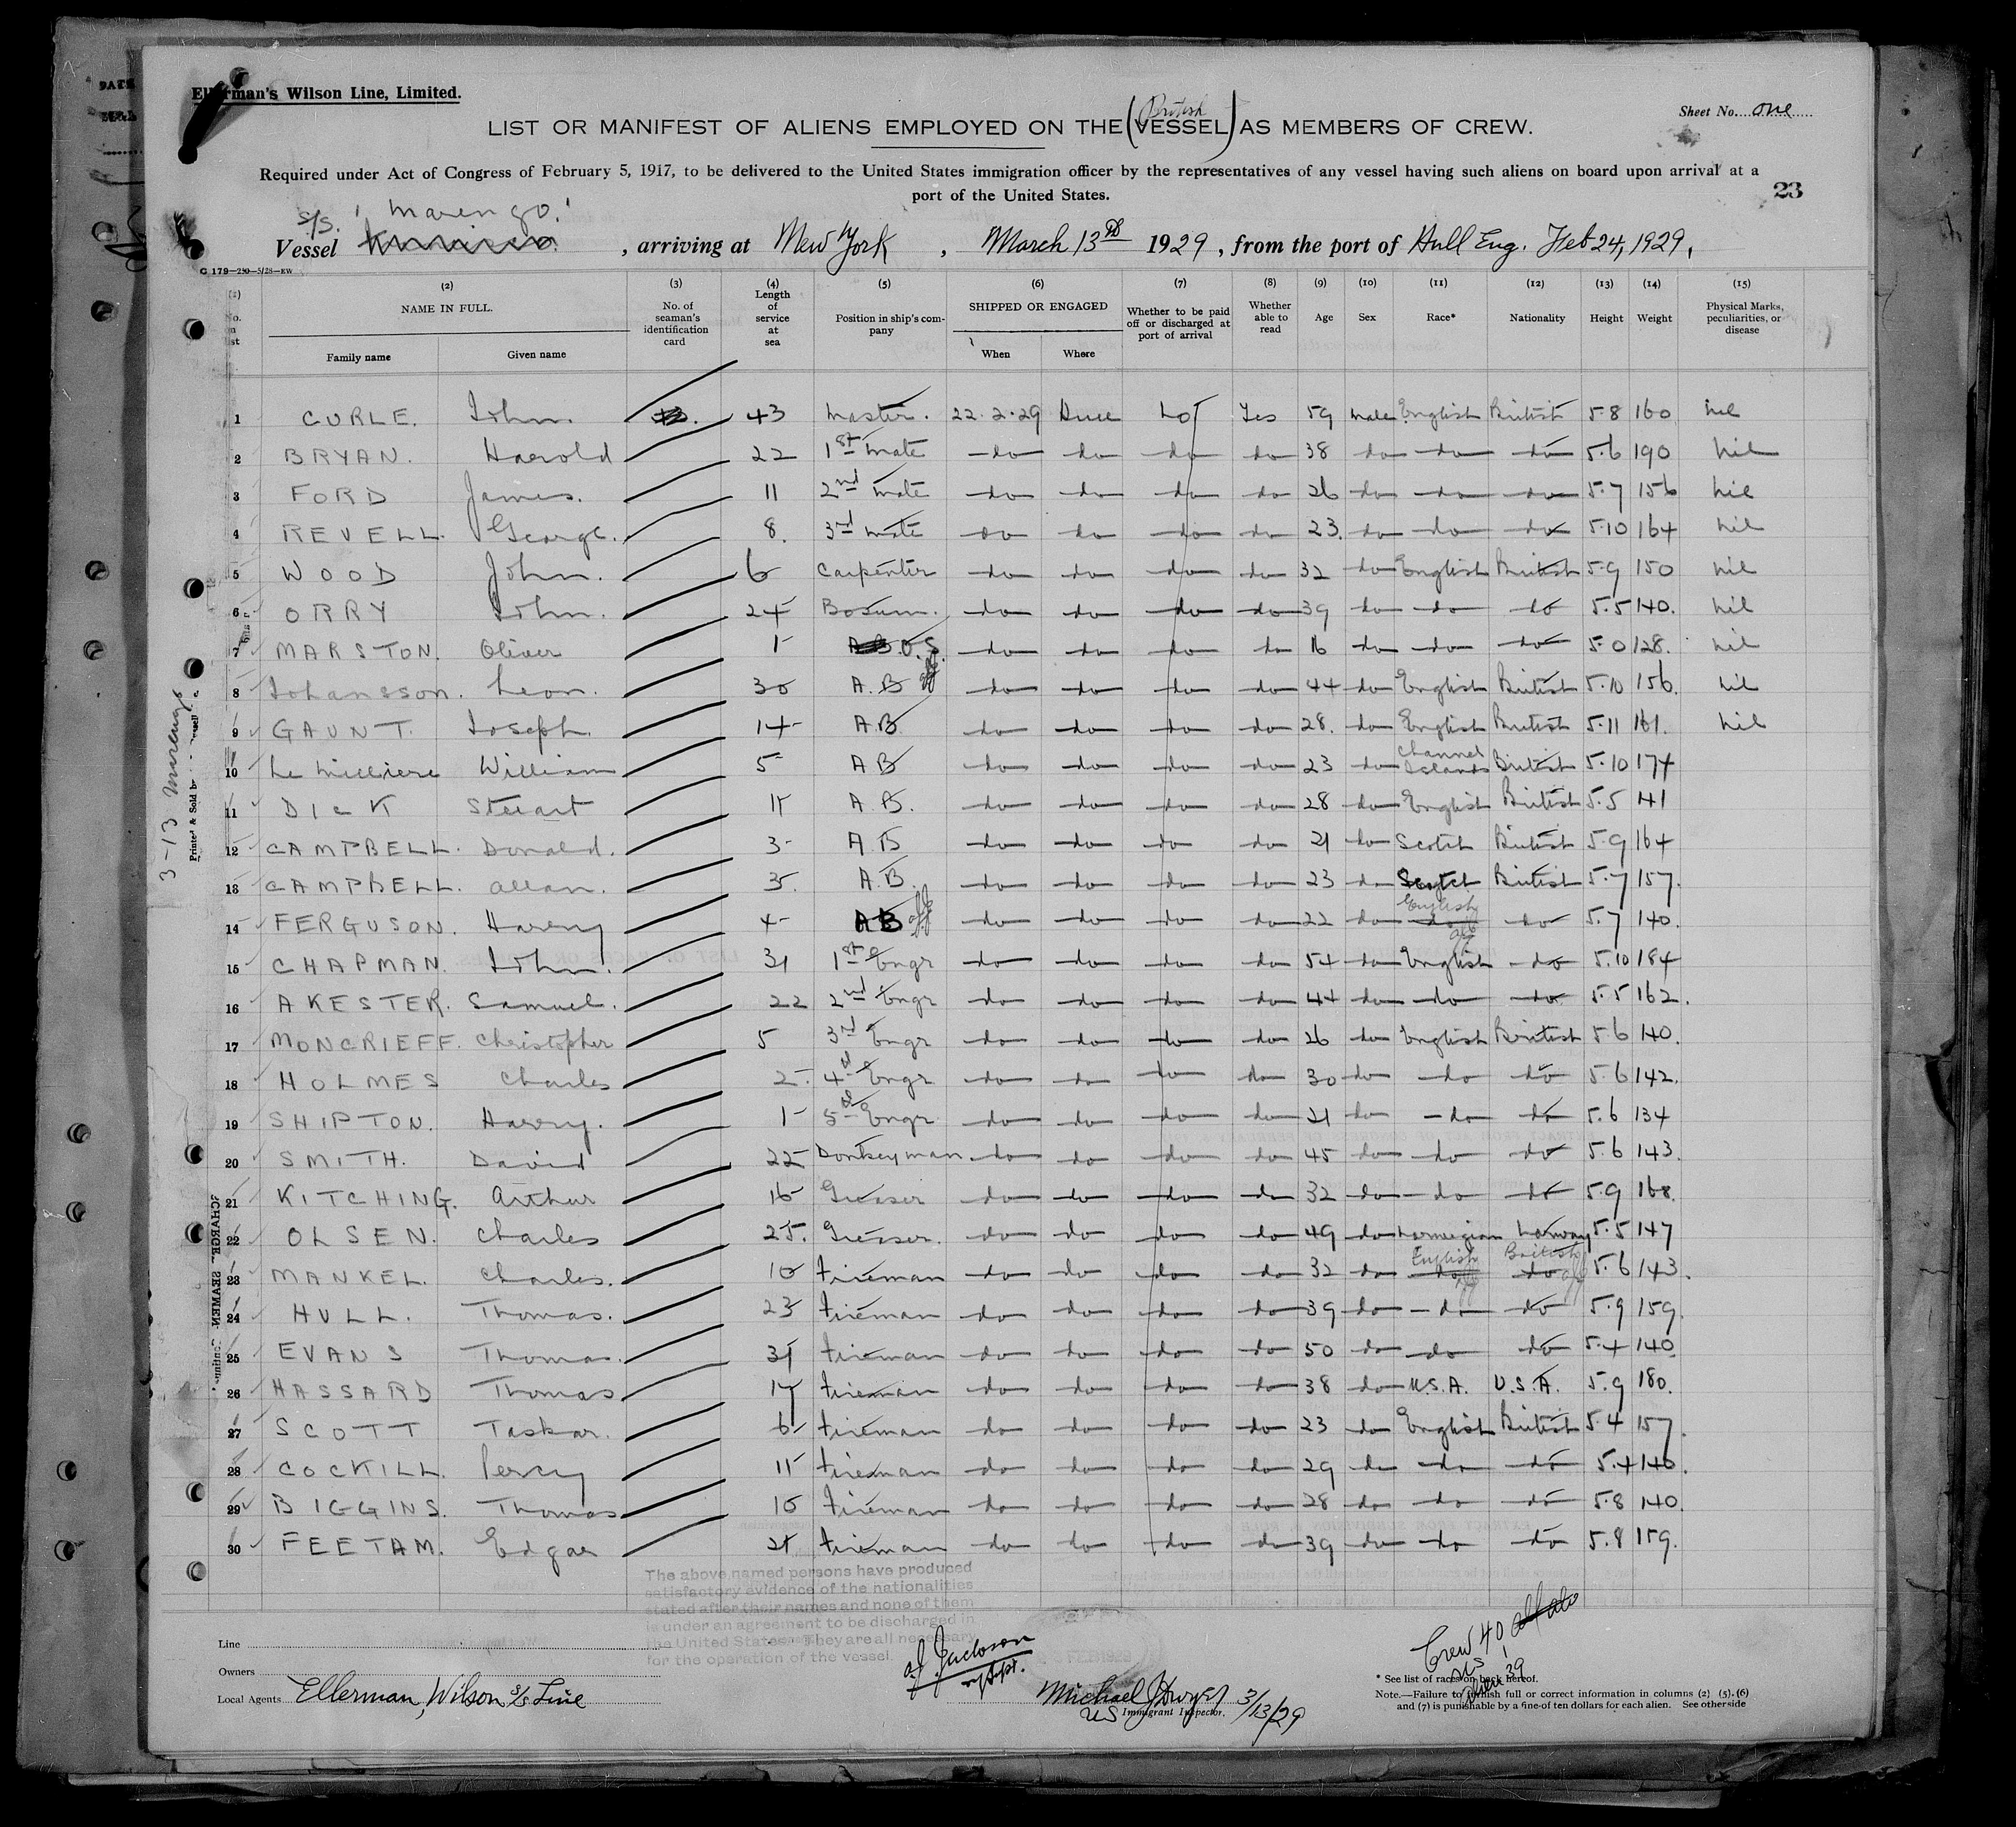 Ellerman's Wilson Line, Limited.
Sheet No. one
British
LIST OR MANIFEST OF ALIENS EMPLOYED ON THE (VESSEL) AS MEMBERS OF CREW.
Required under Act of Congress of February 5, 1917, to be delivered to the United States immigration officer by the representatives of any vessel having such aliens on board upon arrival at a
port of the United States.
23
S/S. 'Marengo'
Vessel , arriving at New York , March 13th 1929 , from the port of Hull Eng. Feb 24, 1929,
C 179-250-5/28-EW
(1) (2) (3) (4) (5) (6) (7) (8) (9) (10) (11) (12) (13) (14) (15)
No. in list NAME IN FULL. Family name Given name No. of seaman's identification card Length of service at sea Position in ship's company SHIPPED OR ENGAGED When Where Whether to be paid off or discharged at port of arrival Whether able to read Age Sex Race* Nationality Height Weight Physical Marks, peculiarities, or disease
1 CURLE. John. 43 Master. 22.2.29 Hull Not Yes 59 Male English British 5.8 160 Nil
2 BRYAN. Harold 22 1st Mate do do do do 38 do do do 5.6 190 Nil
3 FORD James. 11 2nd Mate do do do do 26 do do do 5.7 156 Nil
4 REVELL. George. 8. 3rd Mate do do do do 23. do do do 5.10 164 Nil
5 WOOD John. 6 Carpenter do do do do 32 do English British 5.9 150 Nil
6 ORRY John. 24 Bosun. do do do do 39 do do do 5.5 140. Nil
7 MARSTON. Oliver 1 O.S. do do do do 16 do do do 5.0 128. Nil
8 Johansson. Leon. 30 A.B do do do do 44 do English British 5.10 156. Nil
9 GAUNT. Joseph. 14 A.B. do do do do 28. do English British 5.11 161. Nil
10 Le Milliere William 5 AB do do do do 23 do Channel Islands British 5.10 174
11 DICK Steuart 11 A.B. do do do do 28 do English British 5.5 141
12 CAMPBELL. Donald. 3 A.B do do do do 21 do Scotch British 5.9 164
13 CAMPBELL. Allan. 5. A.B. do do do do 23 do Scotch British 5.7 157.
14 FERGUSON. Harry 4 AB do do do do 22 do English do 5.7 140.
15 CHAPMAN. John. 31 1st Engr do do do do 54 do English do 5.10 184
16 AKESTER. Samuel. 22 2nd Engr do do do do 44 do do do 5.5 162.
17 MONCRIEFF. Christopher 5 3rd Engr do do do do 26 do English British 5.6 140.
18 HOLMES Charles 2. 4th Engr do do do do 30 do do do 5.6 142.
19 SHIPTON. Harry. 1 5th Engr do do do do 21 do do do 5.6 134
20 SMITH. David 22 Donkeyman do do do do 45 do do do 5.6 143.
21 KITCHING. Arthur 16 Greaser do do do do 32 do do do 5.9 168.
22 OLSEN. Charles 25. Greaser. do do do do 49 do Norwegian Norway 5.5 147
23 MANKEL. Charles. 10 Fireman do do do do 32 do English British 5.6 143.
24 HULL. Thomas. 23 Fireman do do do do 39 do do do 5.9 159.
25 EVANS Thomas. 31 Fireman do do do do 50 do do do 5.4 140
26 HASSARD Thomas 17 Fireman do do do do 38 do U.S.A. U.S.A. 5.9 180.
27 SCOTT Taskar. 6 Fireman do do do do 23 do English British 5.4 157.
28 COCKILL. Percy 11 Fireman do do do do 29 do do do 5.4 140.
29 BIGGINS. Thomas 10 Fireman do do do do 28 do do do 5.8 140.
30 FEETAM. Edgar 21 Fireman do do do do 39 do do do 5.8 159.
3-13 Marengo
The above named persons have produced
satisfactory evidence of the nationalities
stated after their names and none of them
is under an agreement to be discharged in
the United States. They are all necessary
for the operation of the vessel.
Line
Owners
Local Agents Ellerman, Wilson S/S Line
Jackson
Michael J Dwyer 3/13/29
US Immigrant Inspector.
Crew 40
* See list of races on back hereof.
Note.—Failure to furnish full or correct information in columns (2) (5), (6)
and (7) is punishable by a fine of ten dollars for each alien. See other side